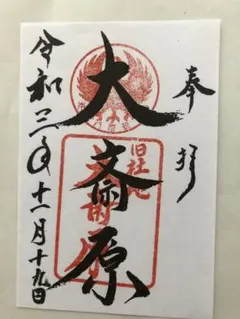 奉拝
大斎原
旧社地
令和三年十一月十九日